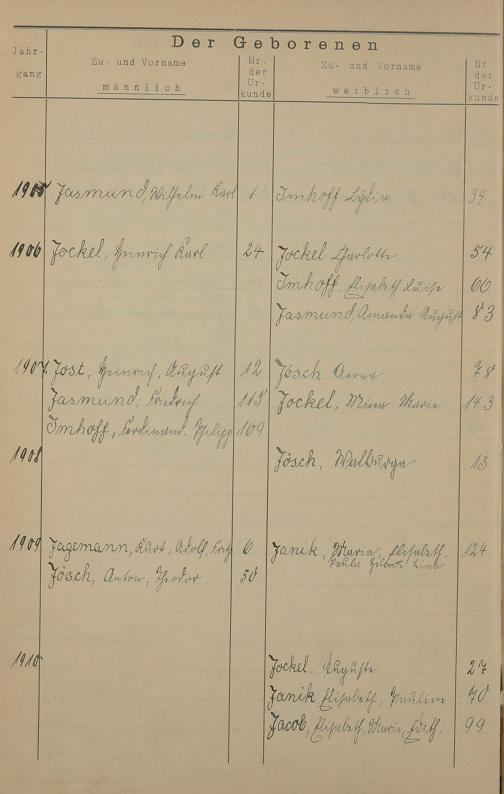 Der Geborenen
Jahrgang Zu- und Vorname männlich Nr. der Urkunde Zu- und Vorname weiblich Nr. der Urkunde
1905 Jasmund, Wilhelm Karl 1 Imhoff Lydia 34
1906 Jockel, Heinrich Karl 24 Jockel Charlotte 54
Imhoff, Elisabeth Luise 60
Jasmund, Amanda August 83
1907. Jost, Heinrich, August 12 Jösch Anna 78
Jasmund, Friedrich 113 Jockel, Mina Marie 143
Imhoff, Ferdinand, Philipp 169
1908 Jösch, Walburga 13
1909 Jagemann, Kurt, Adolf, Fritz 6 Janik, Maria, Elisabeth 124
Jösch, Anton, Theodor 50 Paula Lina
1910 Jockel, Auguste 27
Janik Elisabeth, Pauline 70
Jacob, Elisabeth, Marie, 99